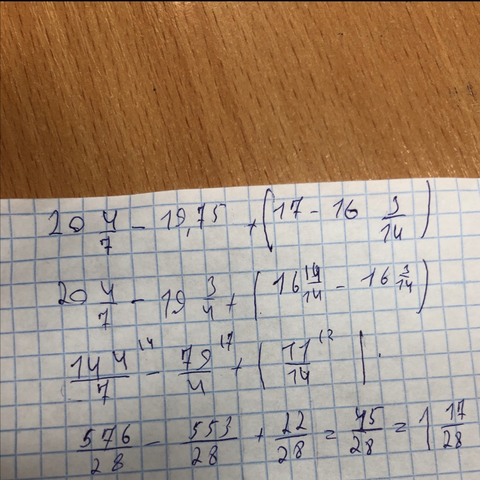 20 4/7 - 19,75 + (17 - 16 3/14)
20 4/7 - 19 3/4 + (16 14/14 - 16 3/14)
144/7 |4 - 79/4 |7 + (11/14 |2)
576/28 - 553/28 + 22/28 = 45/28 = 1 17/28